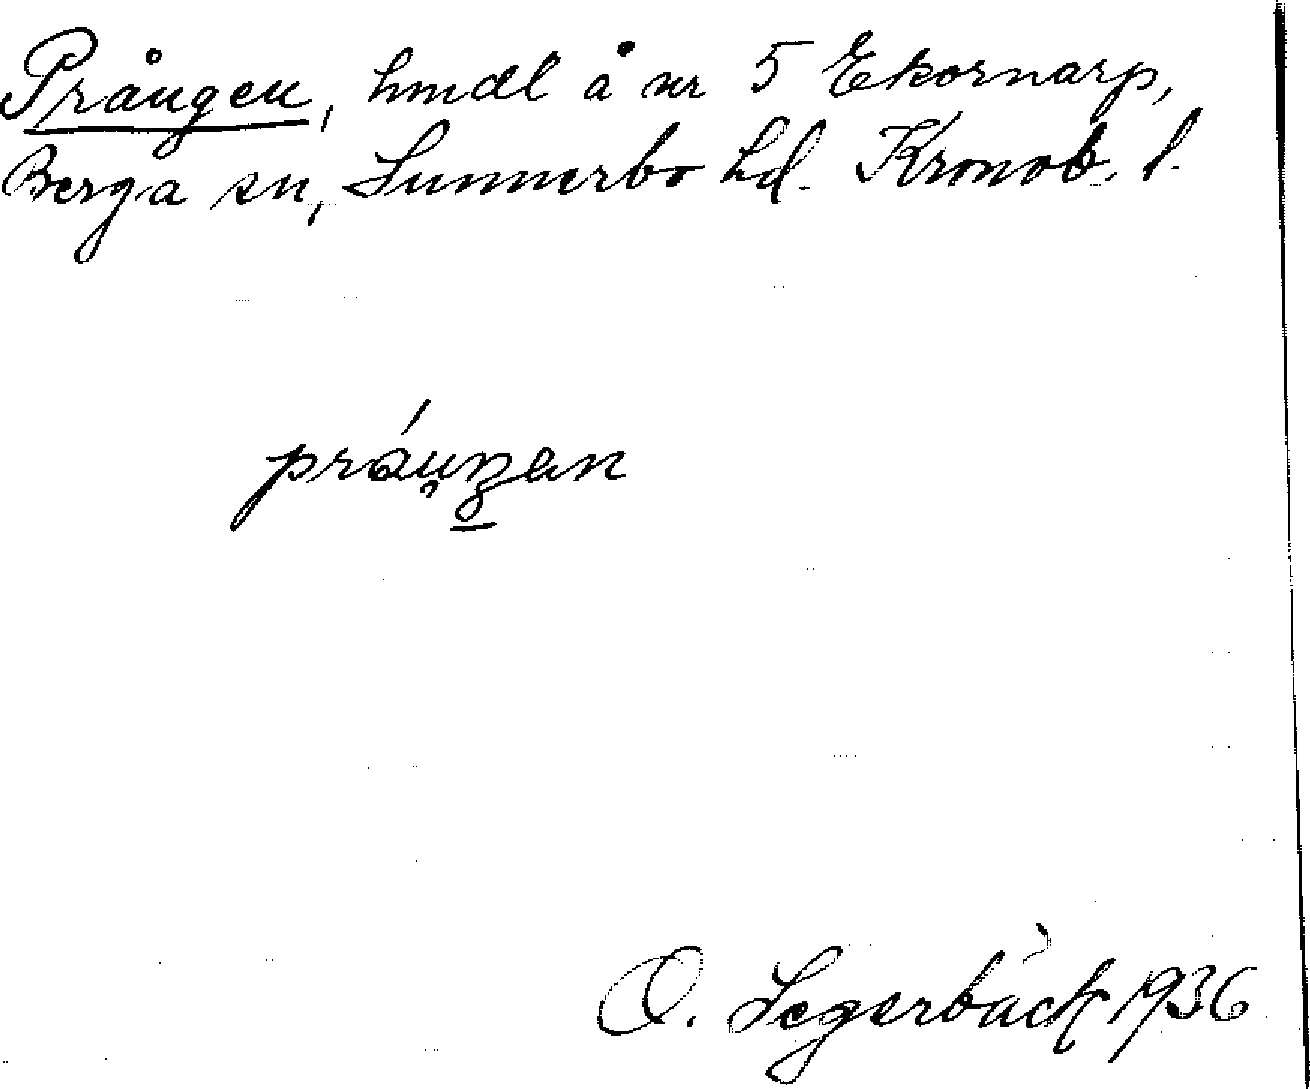 Prången, hmdl å nr 5 Ekornarp,
Berga sn, Sunnerbo hd. Kronob. l.
O. Segerbäck 1936